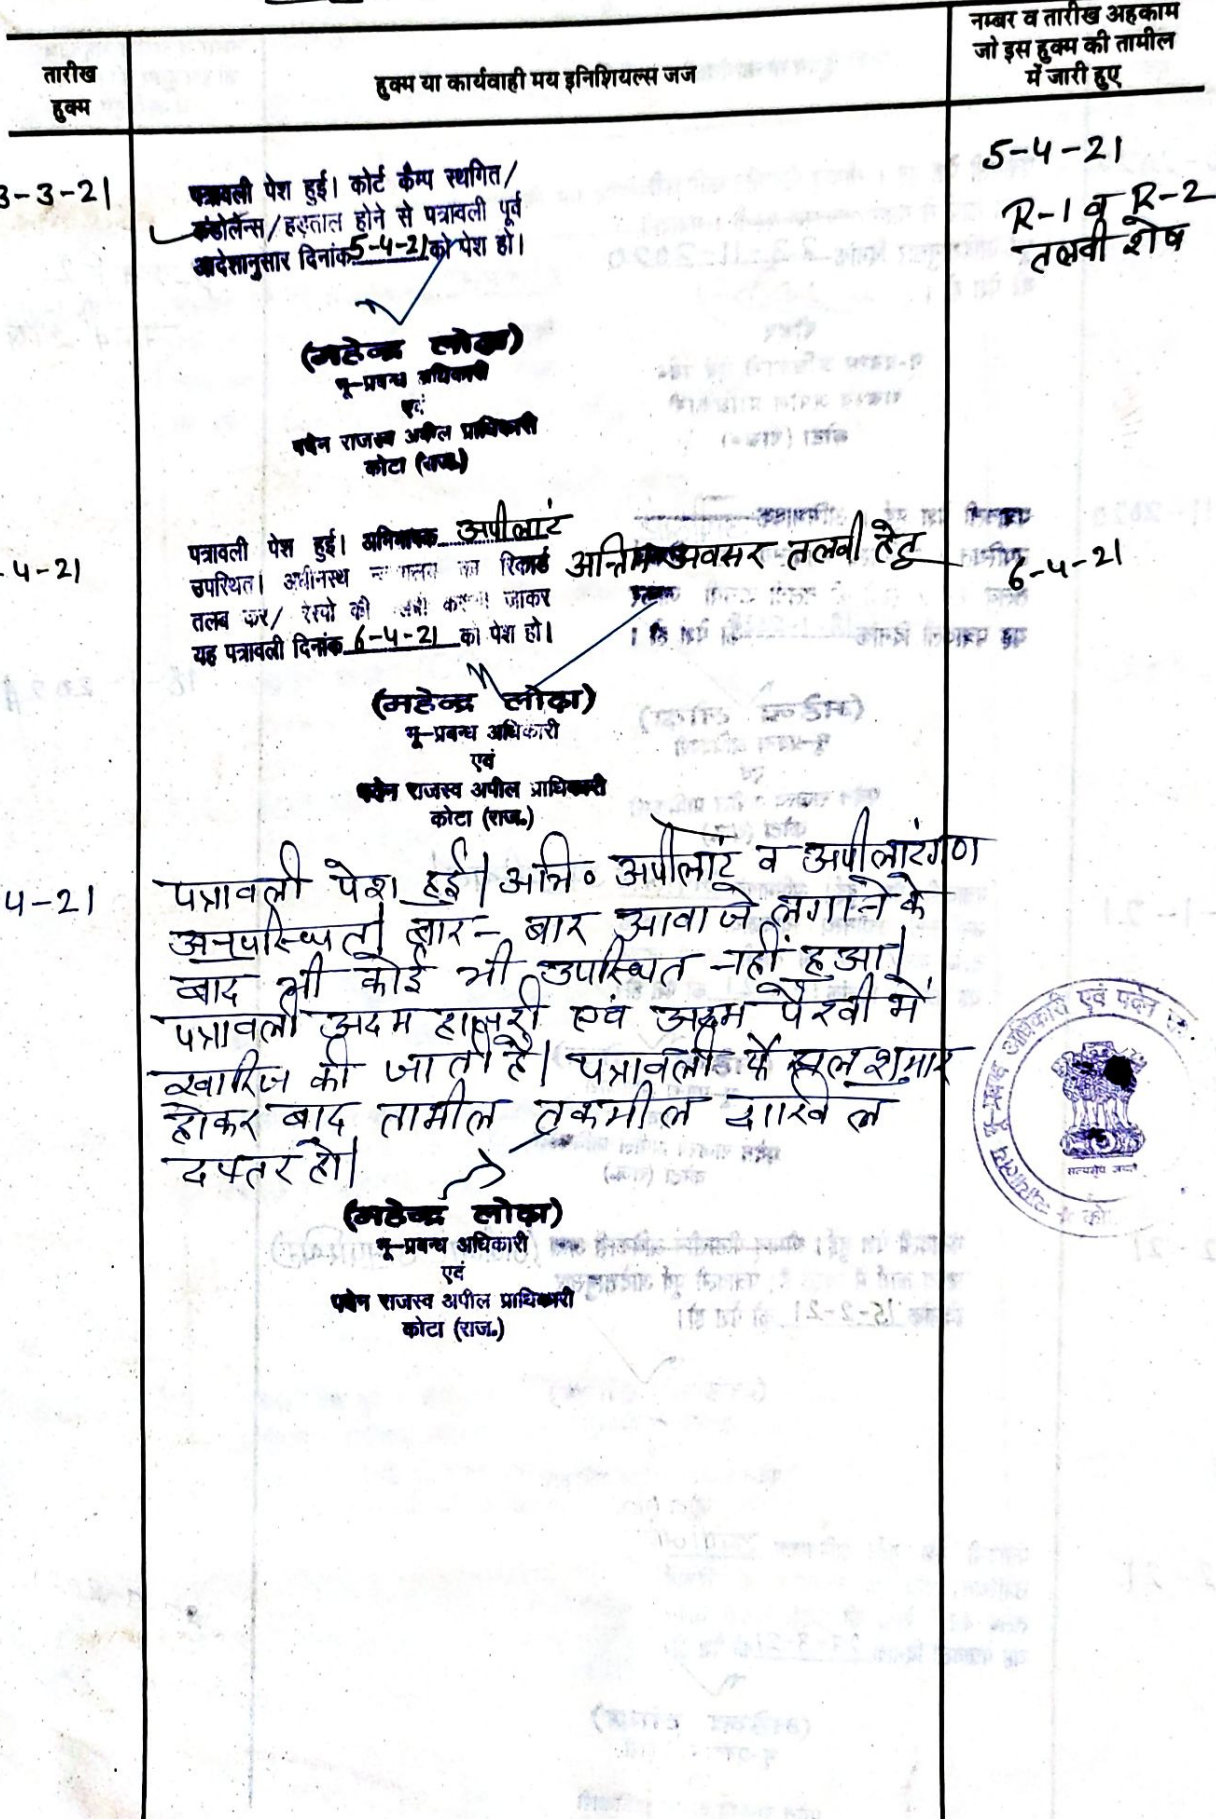 तारीख
हुक्म
हुक्म या कार्यवाही मय इनिशियल्स जज
नम्बर व तारीख अहकाम
जो इस हुक्म की तामील
में जारी हुए
3-3-21
पत्रावली पेश हुई। कोर्ट कैम्प स्थगित/
कंडोलेन्स/हड़ताल होने से पत्रावली पूर्व
आदेशानुसार दिनांक 5-4-21 को पेश हो।
5-4-21
R-1 व R-2
तलवी शेष
(महेन्द्र लोढ़ा)
भू-प्रबन्ध अधिकारी
एवं
पदेन राजस्व अपील प्राधिकारी
कोटा (राज.)
-4-21
पत्रावली पेश हुई। अभिभाषक अपीलांट
उपस्थित। अधीनस्थ न्यायालय का रिकार्ड
तलब कर/ रेस्पो की जाकर
यह पत्रावली दिनांक 6-4-21 को पेश हो।
अन्तिम अवसर तलवी हेतु
6-4-21
(महेन्द्र लोढ़ा)
भू-प्रबन्ध अधिकारी
एवं
पदेन राजस्व अपील प्राधिकारी
कोटा (राज.)
4-21
पत्रावली पेश हुई। अभि॰ अपीलांट व अपीलांटगण
अनुपस्थित। बार-बार आवाजे लगाने के
बाद भी कोई भी उपस्थित नहीं हुआ।
पत्रावली अदम हाजरी एवं अदम पैरवी में
खारिज की जाती है। पत्रावली फैसल शुमार
होकर बाद तामील तकमील दाखिल
दफ्तर हो।
(महेन्द्र लोढ़ा)
भू-प्रबन्ध अधिकारी
एवं
पदेन राजस्व अपील प्राधिकारी
कोटा (राज.)
न्यायालय भू-प्रबन्ध अधिकारी एवं पदेन
सत्यमेव जयते